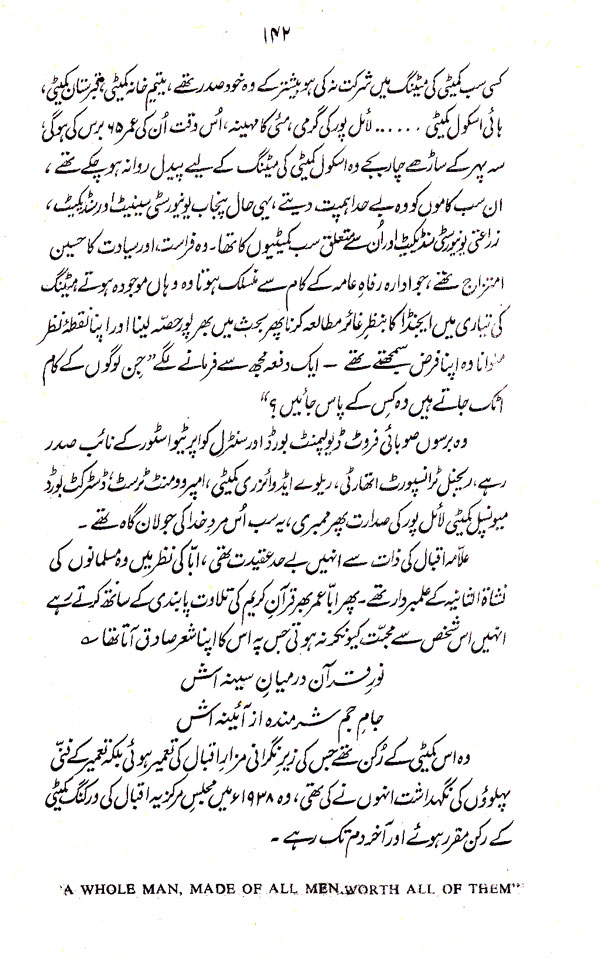 ۱۴۲
کسی سب کمیٹی کی میٹنگ میں شرکت نہ کی ہو بیشتر کے وہ خود صدر تھے، یتیم خانہ کمیٹی، قبرستان کمیٹی،
ہائی اسکول کمیٹی ...... لائل پور کی گرمی، مئی کا مہینہ، اُس وقت اُن کی عمر ۶۵ برس کی ہوگی
سہ پہر کے ساڑھے چار بجے وہ اسکول کمیٹی کی میٹنگ کے لیے پیدل روانہ ہو چکے تھے،
ان سب کاموں کو وہ بے حد اہمیت دیتے، یہی حال پنجاب یونیورسٹی سینیٹ اور سنڈیکیٹ،
زراعتی یونیورسٹی سنڈیکیٹ اور اُن سے متعلق سب کمیٹیوں کا تھا۔ وہ فراست، اور سیادت کا حسین
امتزاج تھے، جو ادارہ رفاہِ عامہ کے کام سے منسلک ہوتا وہ وہاں موجود ہوتے میٹنگ
کی تیاری میں ایجنڈا کا بنظرِ غائر مطالعہ کرنا پھر بحث میں بھرپور حصّہ لینا اور اپنا نقطۂ نظر
منوانا وہ اپنا فرض سمجھتے تھے — ایک دفعہ مجھ سے فرمانے لگے ”جِن لوگوں کے کام
اٹک جاتے ہیں وہ کس کے پاس جائیں؟“
وہ برسوں صوبائی فروٹ ڈویلپمنٹ بورڈ اور سنٹرل کواپریٹیو اسٹور کے نائب صدر
رہے، ریجنل ٹرانسپورٹ اتھارٹی، ریلوے ایڈوائزری کمیٹی، امپروومنٹ ٹرسٹ، ڈسٹرکٹ بورڈ
میونسپل کمیٹی لائل پور کی صدارت پھر ممبری، یہ سب اُس مردِ خدا کی جولان گاہ تھے۔
علاّمہ اقبال کی ذات سے انہیں بے حد عقیدت تھی، ابّا کی نظر میں وہ مسلمانوں کی
نشاۃ الثانیہ کے علمبردار تھے۔ پھر ابّا عمر بھر قرآنِ کریم کی تلاوت پابندی کے ساتھ کرتے رہے
انہیں اس شخص سے محبّت کیونکر نہ ہوتی جس پہ اس کا اپنا شعر صادق آتا تھا ؎
نورِ قرآن درمیانِ سینہ اش
جامِ جم شرمندہ از آئینہ اش
وہ اس کمیٹی کے رُکن تھے جس کی زیرِ نگرانی مزارِ اقبال کی تعمیر ہوئی بلکہ تعمیر کے فنّی
پہلوؤں کی نگہداشت انہوں نے کی تھی، وہ ۱۹۳۸ء میں مجلسِ مرکزیہ اقبال کی ورکنگ کمیٹی
کے رکن مقرر ہوئے اور آخر دم تک رہے۔
"A WHOLE MAN, MADE OF ALL MEN, WORTH ALL OF THEM"